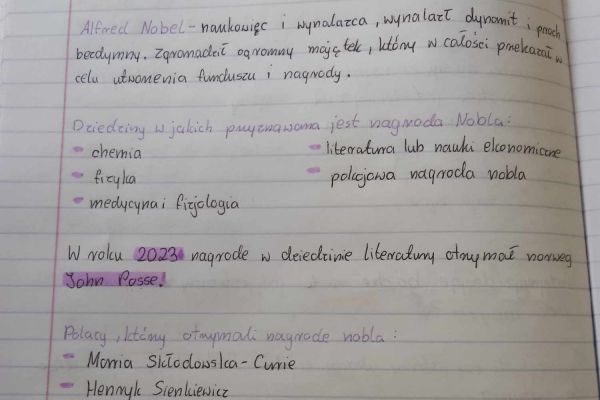 Alfred Nobel - naukowiec i wynalazca, wynalazł dynamit i proch
bezdymny. Zgromadził ogromny majątek, który w całości przekazał w
celu utworzenia funduszu i nagrody.
Dziedziny w jakich przyznawana jest nagroda Nobla:
- chemia
- literatura lub nauki ekonomiczne
- fizyka
- pokojowa nagroda nobla
- medycyna i fizjologia
W roku 2023 nagrode w dziedzinie literatury otrzymał norweg
John Posse!
Polacy, którzy otrzymali nagrode nobla:
- Maria Skłodowska-Curie
- Henryk Sienkiewicz